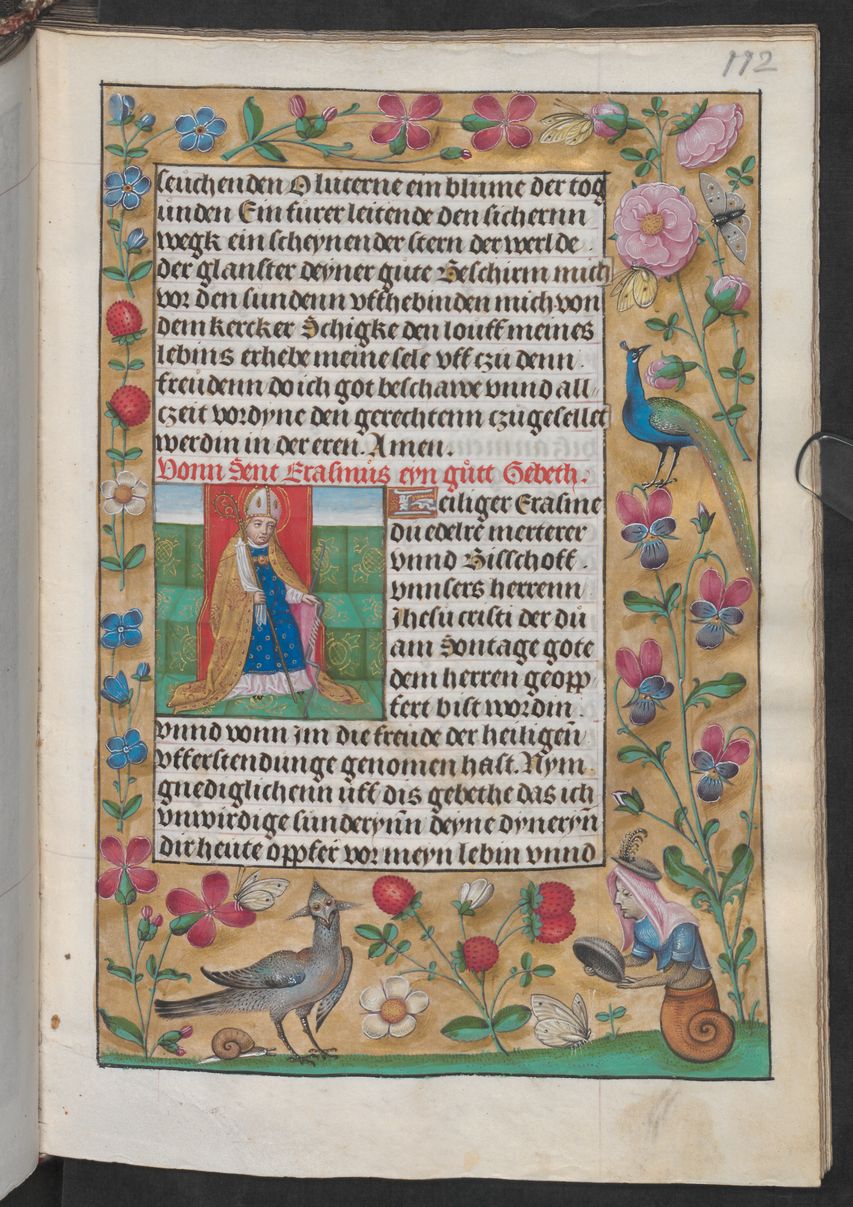 192
leuchenden O luterne ein blume der tog
unden Ein furer leitende den sichernn
wegk ein scheynender stern der werlde
der glanster deyner gute Beschirm mich
vor den sundenn uffhebinden mich von
dem kercker Schigke den louff meines
lebins erhebe meine sele uff czu denn
freudenn do ich got beschawe unnd all
czeit vordyne den gerechtenn czugesellet
werdin in der eren. Amen.
Vonn Sent Erasmus eyn gutt Gebeth.
Heiliger Erasme
du edelre merterer
unnd Bisschoff
unnsers herrenn
Jhesu cristi der du
am Sontage gote
dem herren geopp
fert bist wordin
unnd vonn im die freude der heiligen̄
ufferstendunge genomen hast. Nym
gnediglichenn uff dis gebethe das ich
unwirdige sunderyn̄ deyne dyneryn̄
dir heute oppfer vor meyn lebin unnd